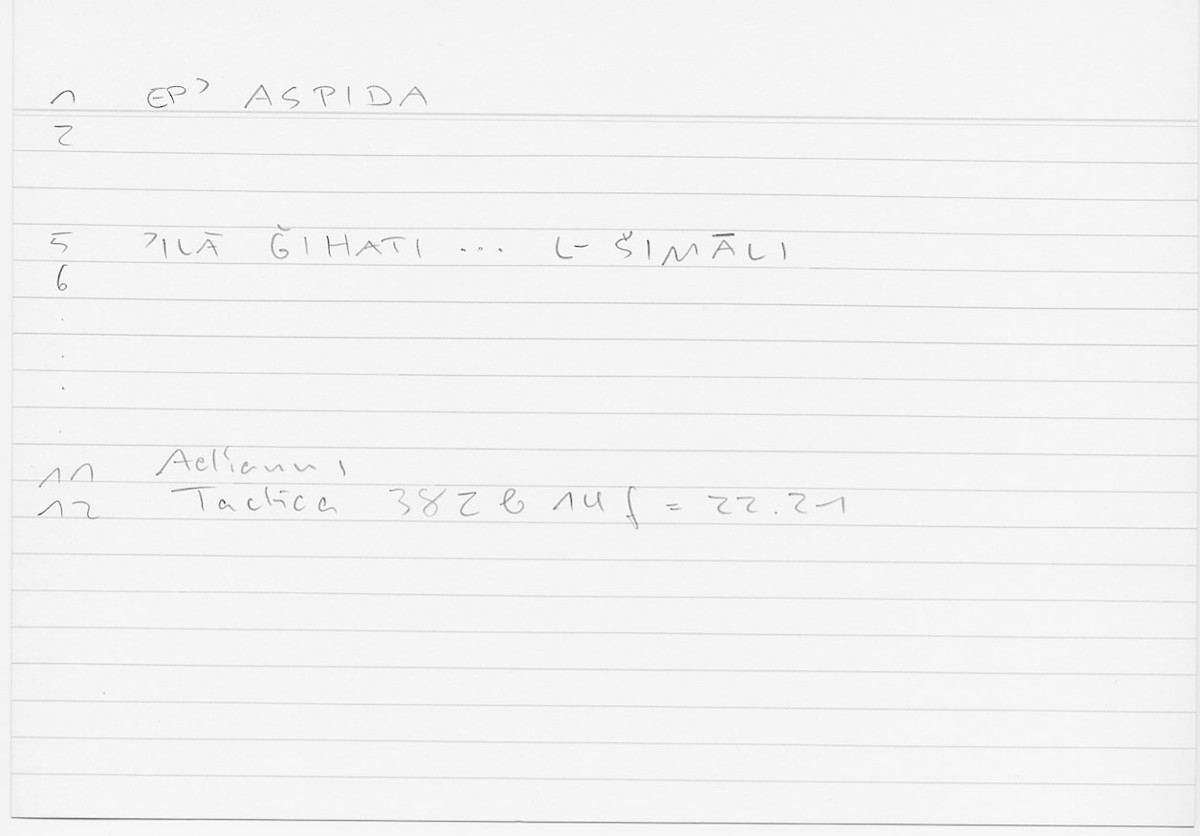 1 EP' ASPIDA
2
5 'ILĀ ĞIHATI ... L-ŠIMĀLI
6
.
.
.
.
11 Aelianus,
12 Tactica 382 b 14 f = 22.21